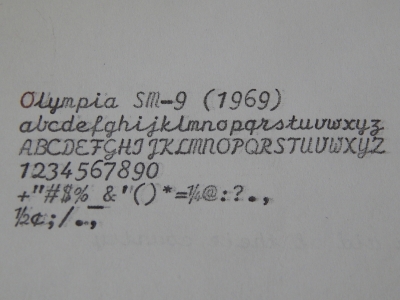 Olympia SM-9 (1969)
abcdefghijklmnopqrstuvwxyz
ABCDEFGHIJKLMNOPQRSTUVWXYZ
1234567890
+"#$%_&'()*=¼@:?.,
½¢;/.,